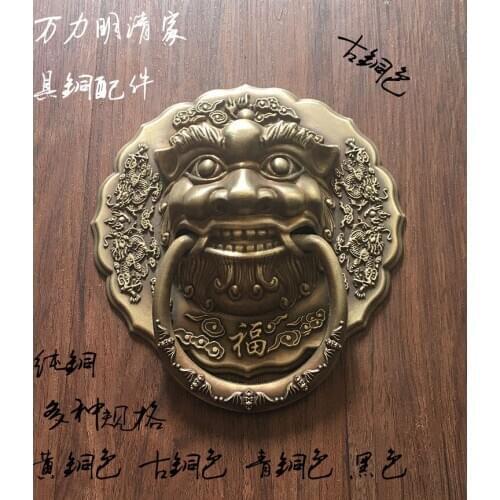 万力明清家
具銅配件
古銅色
福
纯銅
多种规格
黄銅色 古銅色 青銅色 黑色